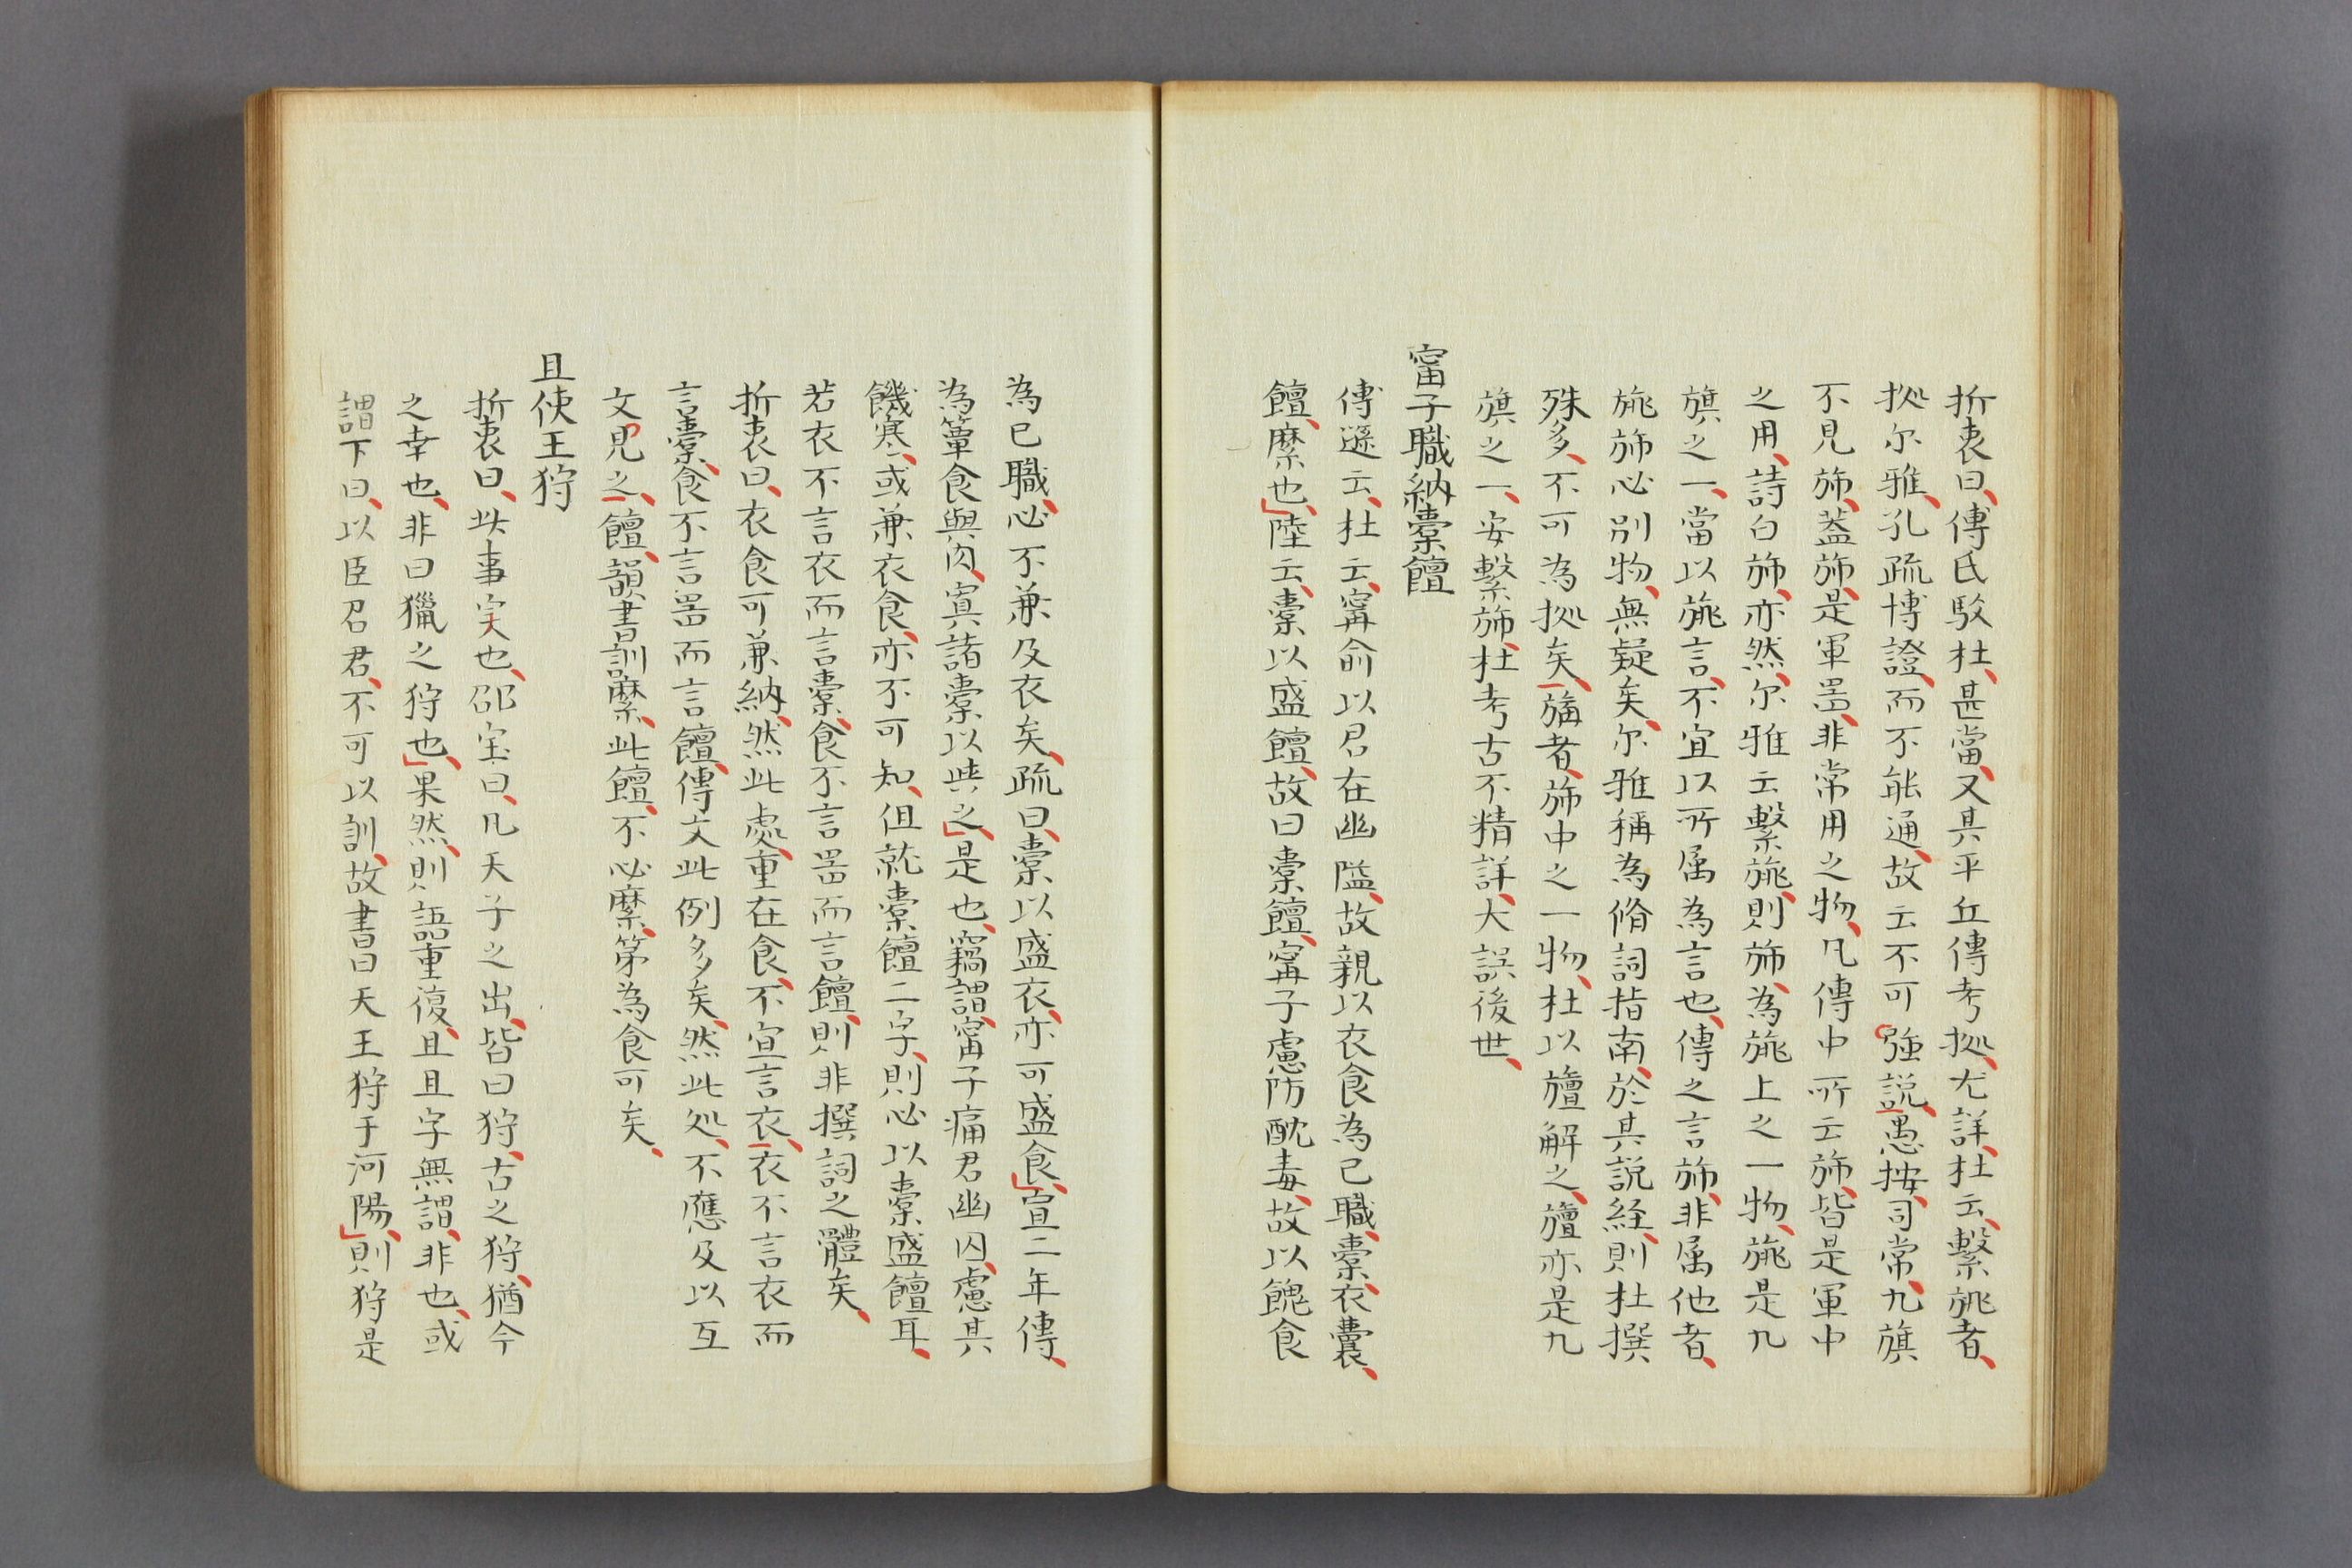 折衷曰、傅氏駁杜、甚當、又具平丘傳考拠、尤詳、杜云、繫旐者、
拠尓雅、孔疏博證、而不能通、故云不可強説、愚按、司常、九旗
不見斾、蓋斾、是軍噐、非常用之物、凡傳中所云斾、皆是軍中
之用、詩白斾、亦然、尓雅云繫旐、則斾、為旐上之一物、旐是九
旗之一、當以旐言、不宜以所属為言也、傳之言斾、非属他者、
旐斾必別物、無疑矣、尓雅稱為脩詞指南、於其説経、則杜撰
殊多、不可為拠矣、旃者、斾中之一物、杜以旜解之、旜亦是九
旗之一、安繫斾、杜考古不精詳、大誤後世、
甯子職納橐饘
傅遜云、杜云、甯俞以君在幽隘、故親以衣食為己職、橐、衣囊、
饘、糜也、陸云、橐以盛饘、故曰橐饘、甯子慮防酖毒、故以餽食
為己職、必不兼及衣矣、疏曰、橐以盛衣、亦可盛食、宣二年傳、
為簞食與肉、寘諸橐以與之、是也、竊謂、甯子痛君幽囚、慮其
饑寒、或兼衣食、亦不可知、但就橐饘二字、則必以橐盛饘耳、
若衣不言衣而言橐、食不言噐而言饘、則非撰詞之體矣、
折衷曰、衣食可兼納、然此處、重在食、不宜言衣、衣不言衣而
言橐、食不言噐而言饘、傳文此例多矣、然此処、不應及以互
文見之、饘、韻書訓糜、此饘、不必糜、第為食可矣、
且使王狩
折衷曰、此事实也、邵宝曰、凡天子之出、皆曰狩、古之狩、猶今
之幸也、非曰獵之狩也、果然、則語重復、且且字無謂、非也、或
謂下曰、以臣召君、不可以訓、故書曰天王狩于河陽、則狩是